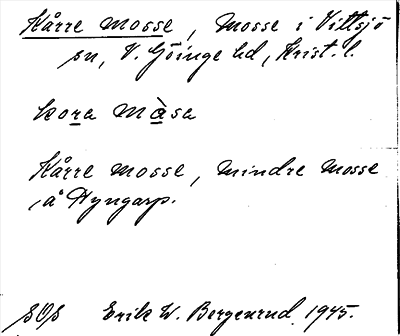 Kårre mosse, Mosse i Vittsjö
sn, V. Göinge hd, Krist. l.
kora màsa
Kårre mosse, mindre mosse
å Kyngarp.
Erik W. Bergenrud 1945.